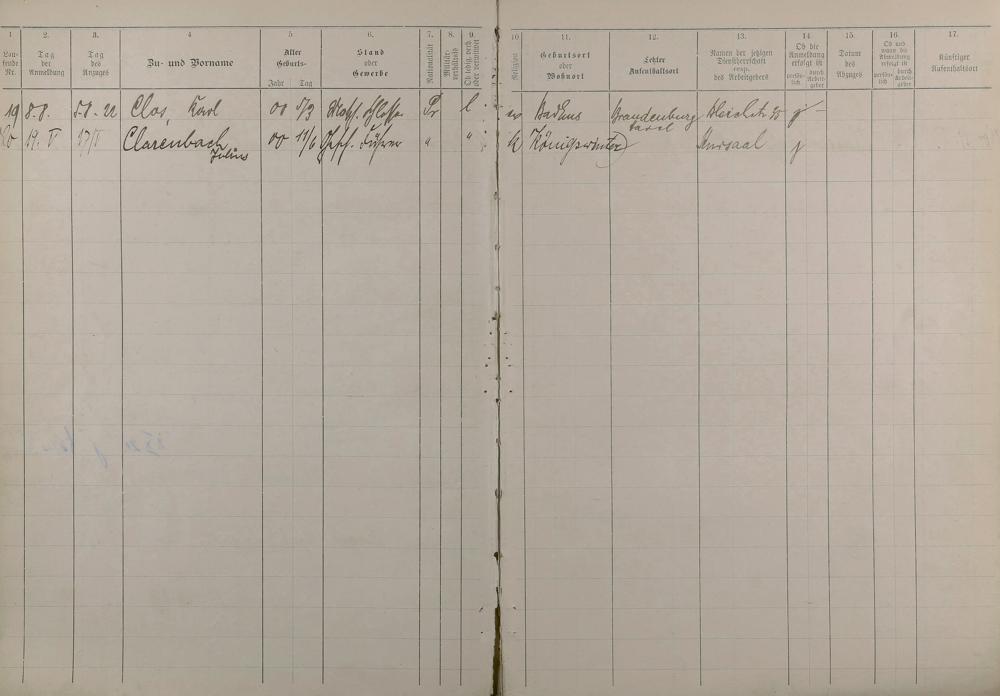 1
2.
3.
4
5
6.
7.
8.
9.
10
11.
12.
13.
14
15.
16.
17.
Lau-
fende
Nr.
Tag
der
Anmeldung
Tag
des
Anzuges
Zu- und Vorname
Alter
Geburts-
Jahr Tag
Stand
oder
Gewerbe
Nationalität
Militär-
verhältnis
Ob ledig, verh.
oder verwitwet
Religion
Geburtsort
oder
Wohnort
Letzter
Aufenthaltsort
Namen der jetzigen
Dienstherrschaft
resp.
des Arbeitgebers
Ob die
Anmeldung
erfolgt ist
persön-
lich
durch
Arbeit-
geber
Datum
des
Abzuges
Ob und
wann die
Abmeldung
erfolgt ist
persön-
lich
durch
Arbeit-
geber
Künftiger
Aufenthaltsort
19 8.8. 5.8.22 Clos, Karl 00 5/3 Masch. Schlosser Pr l. ev Bad Ems Brandenburg
19. V 17/5 Clarenbach 00 11/6 Gesch. Führer " " k Königswinter Kursaal
Julius